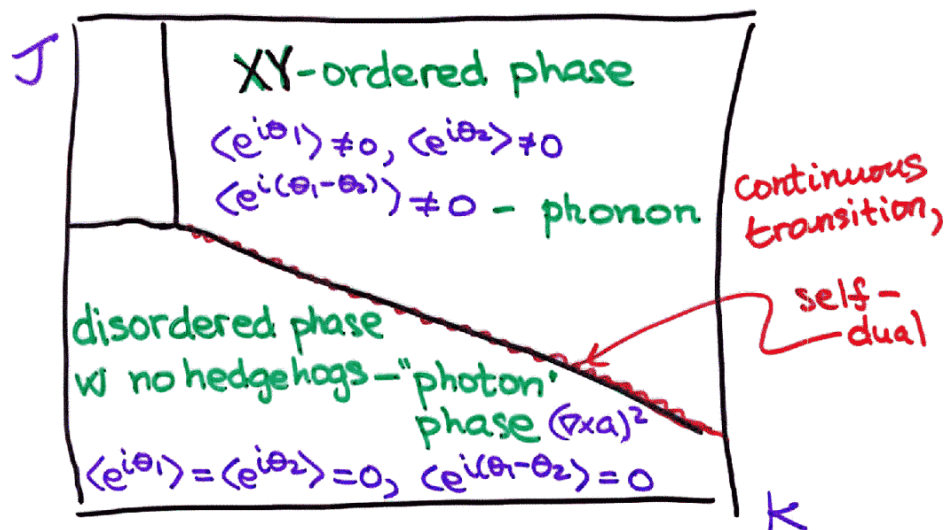 J
XY-ordered phase
⟨e^{iθ₁}⟩ ≠ 0, ⟨e^{iθ₂}⟩ ≠ 0
⟨e^{i(θ₁-θ₂)}⟩ ≠ 0 - phonon
continuous
transition,
self-
dual
disordered phase
w/ no hedgehogs - "photon"
phase (∇×a)²
⟨e^{iθ₁}⟩ = ⟨e^{iθ₂}⟩ = 0, ⟨e^{i(θ₁-θ₂)}⟩ = 0
K